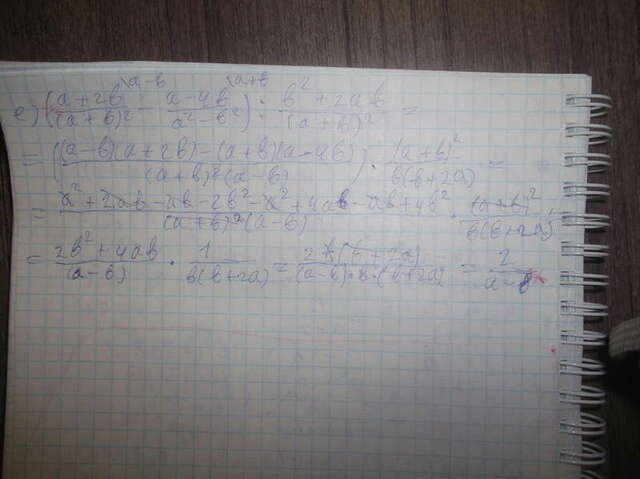 е) ((a+2b)/(a+b)² \a-b - (a-4b)/(a²-b²) \a+b) : (b²+2ab)/(a+b)² =
= ((a-b)(a+2b)-(a+b)(a-4b))/((a+b)²(a-b)) · (a+b)²/(b(b+2a)) =
= (a²+2ab-ab-2b²-a²+4ab-ab+4b²)/((a+b)²(a-b)) · (a+b)²/(b(b+2a)) =
= (2b²+4ab)/(a-b) · 1/(b(b+2a)) = 2b(b+2a)/((a-b)·b·(b+2a)) = 2/(a-b)